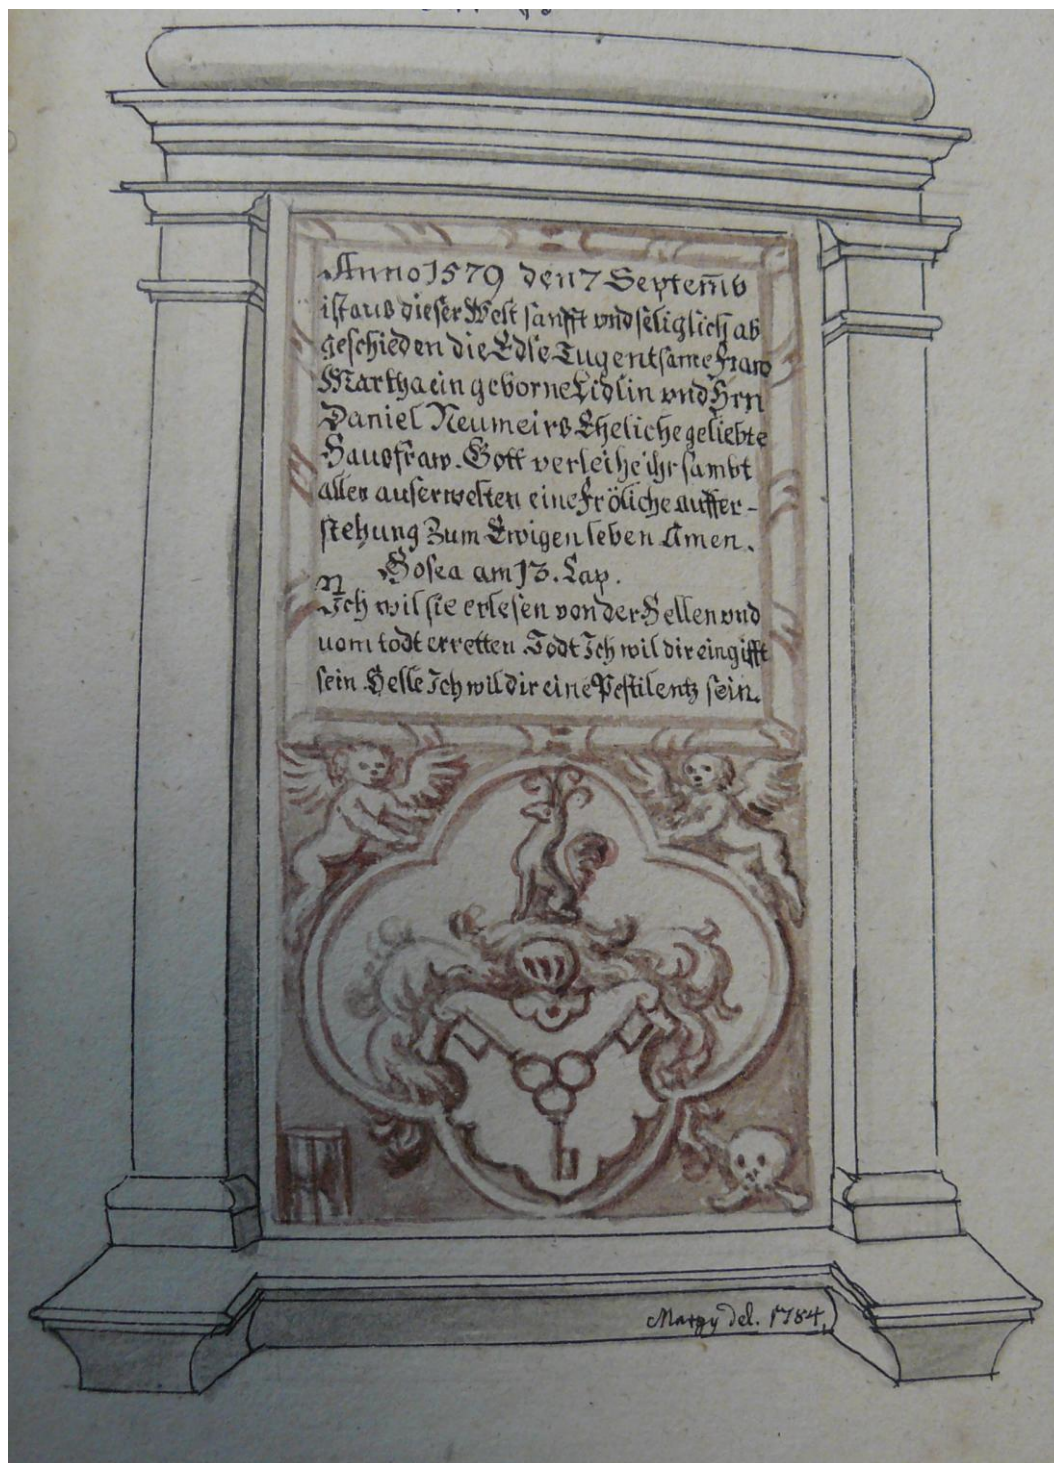 Anno 1579 den 7 Septem̄b
ist aus dieser Welt sanfft vnd seliglich ab
geschieden die Edle Tugentsame Fraw
Martha ein geborne Lidlin vnd Hrn
Daniel Neumeirs Eheliche geliebte
Hausfraw. Gott verleihe ihr sambt
allen auserwelten eine Fröliche auffer-
stehung Zum Ewigen leben Amen.
Hosea am 13. Cap.
Ich wil sie erlesen von der Hellen vnd
vom todt erretten. Todt Ich wil dir ein gifft
sein. Helle Ich wil dir eine Pestilentz sein.
del. 1784.